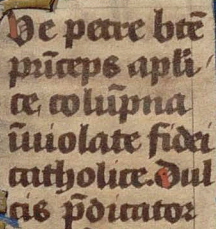 Ve petre btē
prīceps apli
ce, colūpna
īuiolate fidei
catholice. Dul
cis p̄dicator